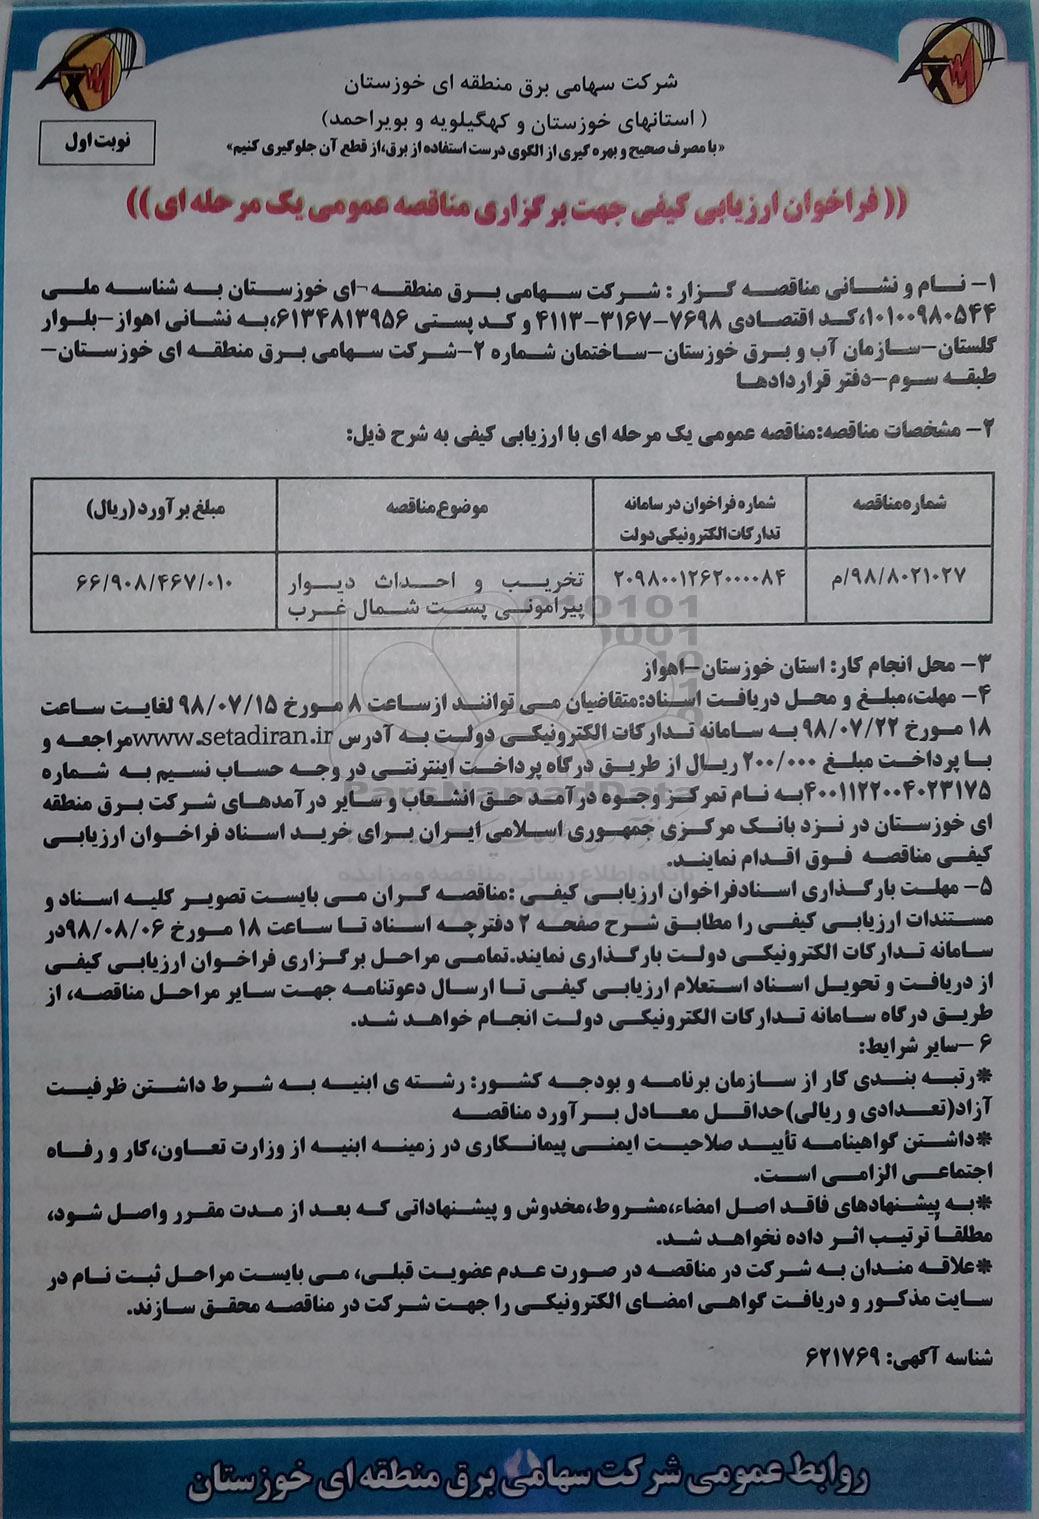 شرکت سهامی برق منطقه ای خوزستان
( استانهای خوزستان و کهگیلویه و بویراحمد)
نوبت اول
«با مصرف صحیح و بهره گیری از الگوی درست استفاده از برق،از قطع آن جلوگیری کنیم»
(( فراخوان ارزیابی کیفی جهت برگزاری مناقصه عمومی یک مرحله ای ))
۱- نام و نشانی مناقصه گزار : شرکت سهامی برق منطقه ¬ای خوزستان به شناسه ملی
۱۰۱۰۰۹۸۰۵۴۴،کد اقتصادی ۷۶۹۸-۳۱۶۷-۴۱۱۳ و کد پستی ۶۱۳۴۸۱۳۹۵۶،به نشانی اهواز-بلوار
گلستان-سازمان آب و برق خوزستان-ساختمان شماره ۲-شرکت سهامی برق منطقه ای خوزستان-
طبقه سوم-دفتر قراردادها
۲- مشخصات مناقصه:مناقصه عمومی یک مرحله ای با ارزیابی کیفی به شرح ذیل:
شماره مناقصه
شماره فراخوان در سامانه
تدارکات الکترونیکی دولت
موضوع مناقصه
مبلغ برآورد (ریال)
۹۸/۸۰۲۱۰۲۷/م
۲۰۹۸۰۰۱۲۶۲۰۰۰۰۸۴
تخریب و احداث دیوار
پیرامونی پست شمال غرب
۶۶/۹۰۸/۴۶۷/۰۱۰
۳- محل انجام کار: استان خوزستان-اهواز
۴- مهلت،مبلغ و محل دریافت اسناد:متقاضیان می توانند از ساعت ۸ مورخ ۹۸/۰۷/۱۵ لغایت ساعت
۱۸ مورخ ۹۸/۰۷/۲۲ به سامانه تدارکات الکترونیکی دولت به آدرس www.setadiran.irمراجعه و
با پرداخت مبلغ ۲۰۰/۰۰۰ ریال از طریق درگاه پرداخت اینترنتی در وجه حساب نسیم به شماره
۴۰۰۱۱۲۲۰۰۴۰۲۳۱۷۵به نام تمرکز وجوه درآمد حق انشعاب و سایر درآمدهای شرکت برق منطقه
ای خوزستان در نزد بانک مرکزی جمهوری اسلامی ایران برای خرید اسناد فراخوان ارزیابی
کیفی مناقصه فوق اقدام نمایند.
۵- مهلت بارگذاری اسنادفراخوان ارزیابی کیفی :مناقصه گران می بایست تصویر کلیه اسناد و
مستندات ارزیابی کیفی را مطابق شرح صفحه ۲ دفترچه اسناد تا ساعت ۱۸ مورخ ۹۸/۰۸/۰۶در
سامانه تدارکات الکترونیکی دولت بارگذاری نمایند.تمامی مراحل برگزاری فراخوان ارزیابی کیفی
از دریافت و تحویل اسناد استعلام ارزیابی کیفی تا ارسال دعوتنامه جهت سایر مراحل مناقصه، از
طریق درگاه سامانه تدارکات الکترونیکی دولت انجام خواهد شد.
۶ -سایر شرایط:
*رتبه بندی کار از سازمان برنامه و بودجه کشور: رشته ی ابنیه به شرط داشتن ظرفیت
آزاد(تعدادی و ریالی)حداقل معادل برآورد مناقصه
*داشتن گواهینامه تأیید صلاحیت ایمنی پیمانکاری در زمینه ابنیه از وزارت تعاون،کار و رفاه
اجتماعی الزامی است.
*به پیشنهادهای فاقد اصل امضاء،مشروط،مخدوش و پیشنهاداتی که بعد از مدت مقرر واصل شود،
مطلقاً ترتیب اثر داده نخواهد شد.
*علاقه مندان به شرکت در مناقصه در صورت عدم عضویت قبلی، می بایست مراحل ثبت نام در
سایت مذکور و دریافت گواهی امضای الکترونیکی را جهت شرکت در مناقصه محقق سازند.
شناسه آگهی: ۶۲۱۷۶۹
روابط عمومی شرکت سهامی برق منطقه ای خوزستان
ParsNamadData
پایگاه اطلاع رسانی مناقصه و مزایده